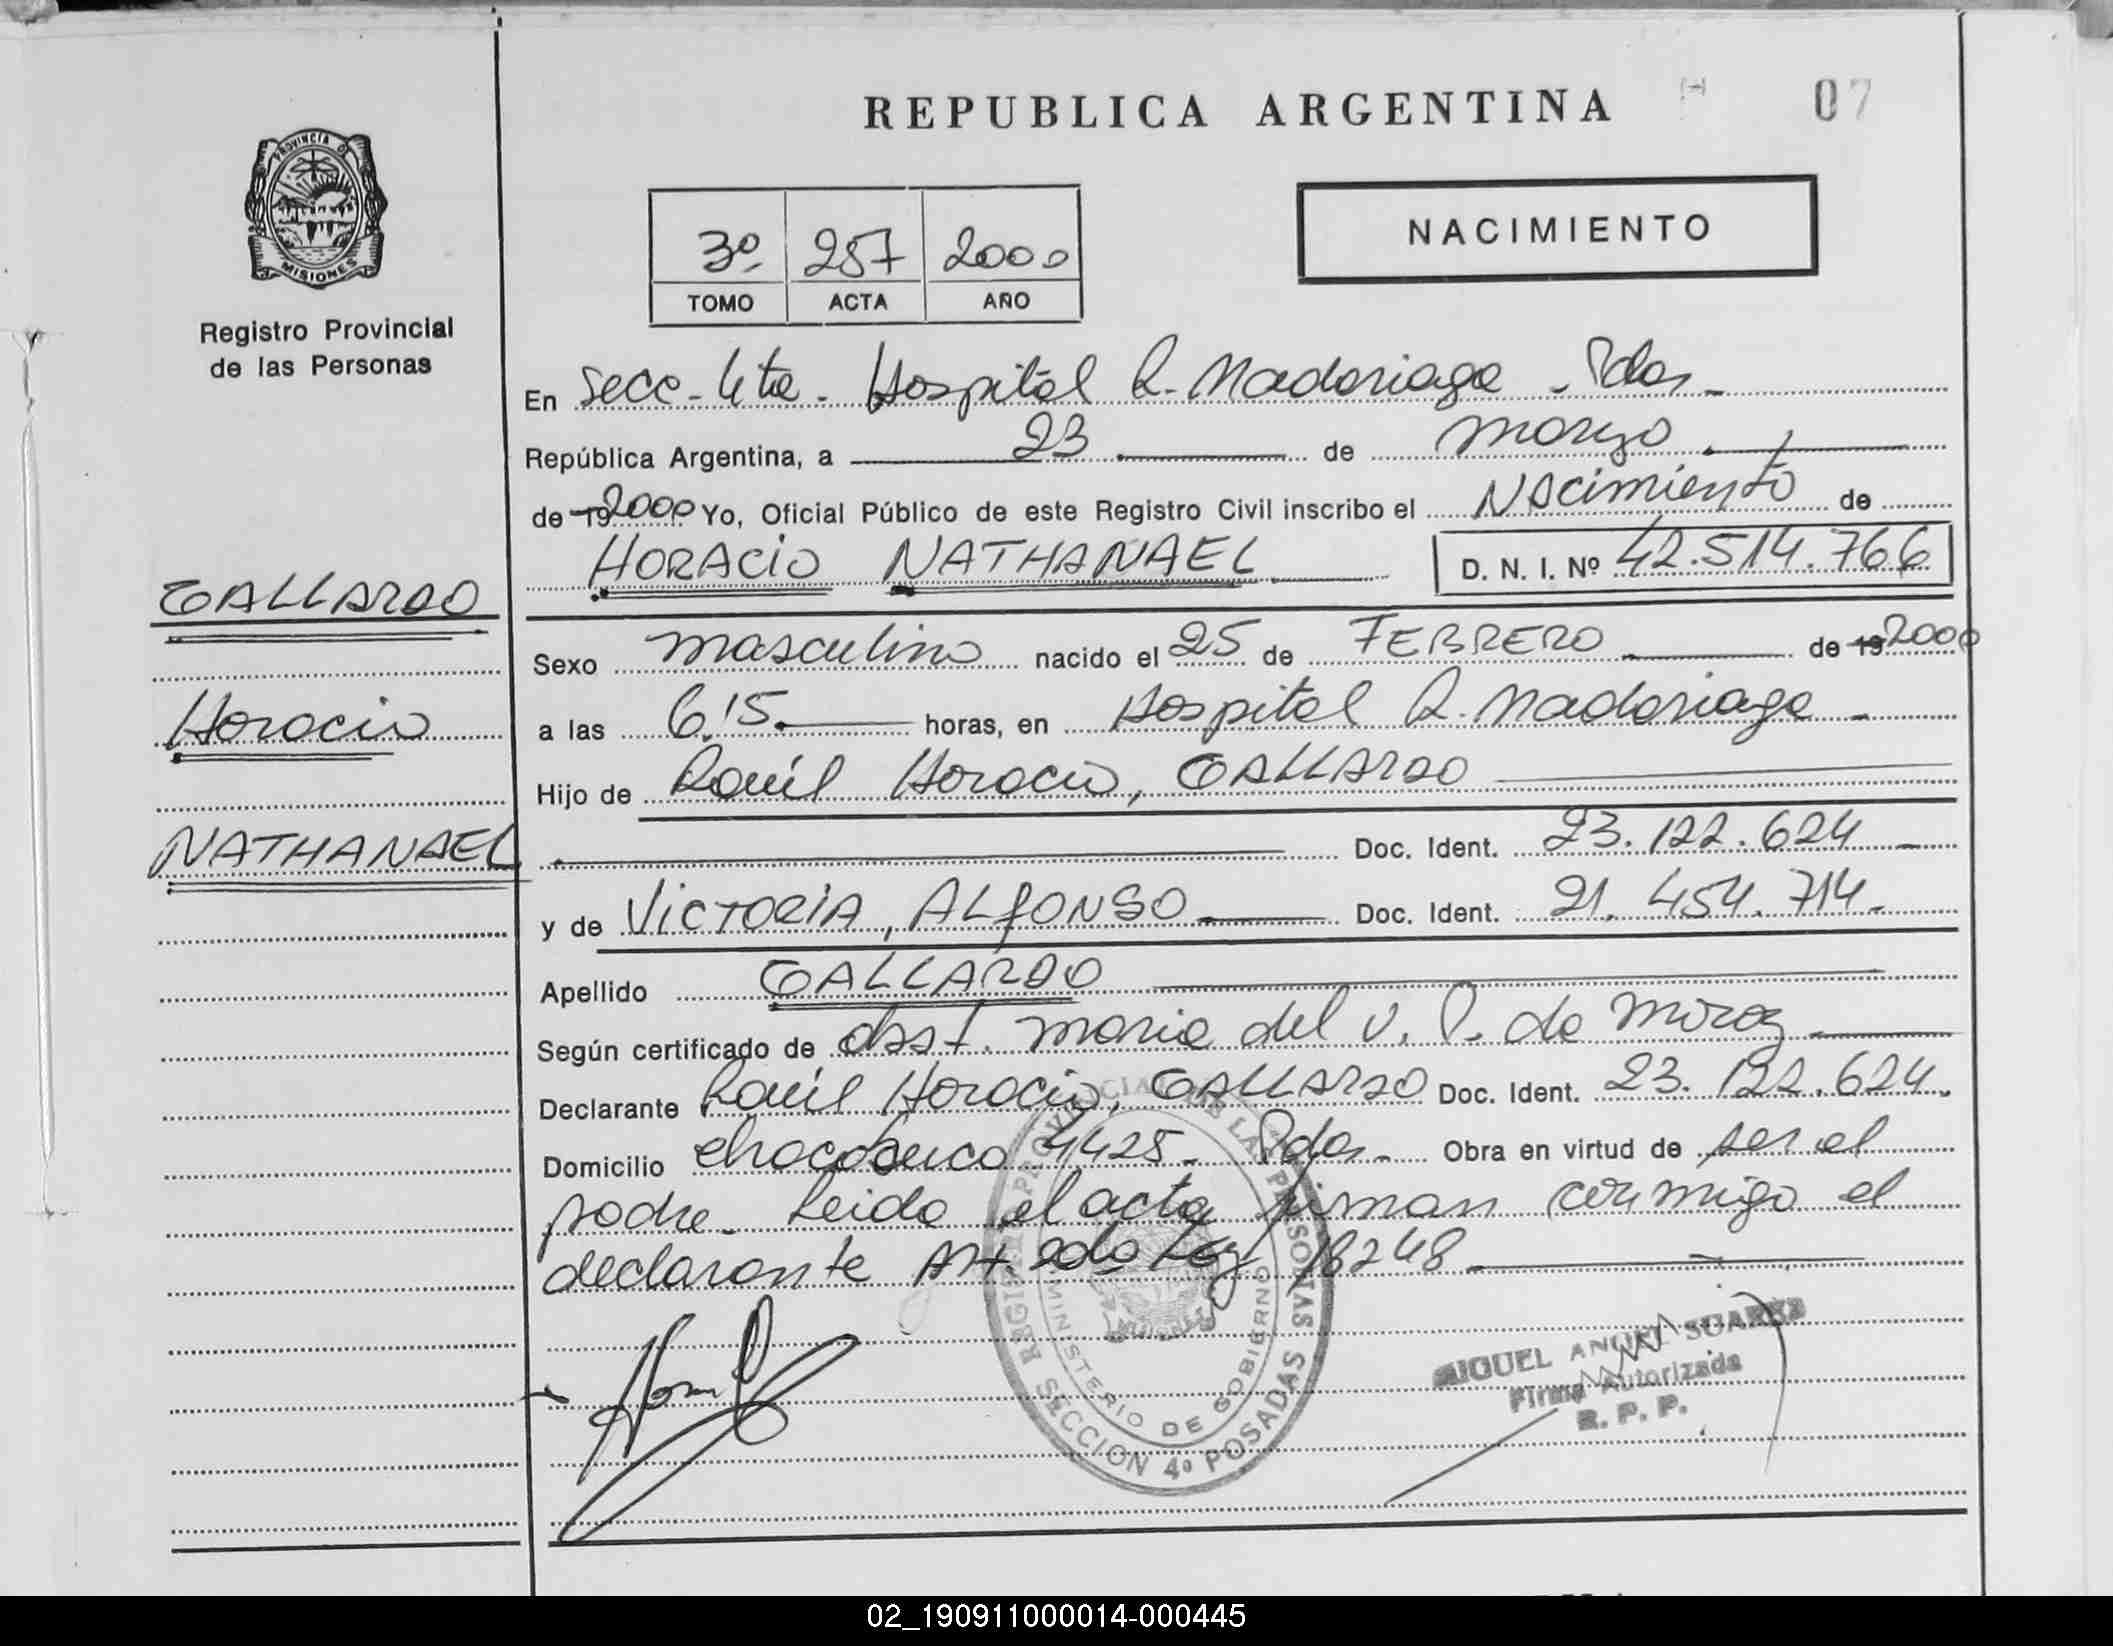 REPUBLICA ARGENTINA
07
PROVINCIA DE
MISIONES
Registro Provincial
de las Personas
3º 287 2000
TOMO ACTA AÑO
NACIMIENTO
En Secc. 4ta. Hospital R. Madariaga - Pdas -
República Argentina, a 23 de marzo
de 19 2000 Yo, Oficial Público de este Registro Civil inscribo el Nacimiento de
HORACIO NATHANAEL D. N. I. Nº 42.514.766
GALLARDO
Horacio
NATHANAEL
Sexo masculino nacido el 25 de FEBRERO de 19 2000
a las 6.15 horas, en Hospital R. Madariaga -
Hijo de Raúl Horacio, GALLARDO
Doc. Ident. 23.122.624
y de VICTORIA, ALFONSO Doc. Ident. 21.454.714.
Apellido GALLARDO
Según certificado de obst. maria del V. P. de
Declarante Raúl Horacio, GALLARDO Doc. Ident. 23.122.624.
Domicilio chacabuco 4425 - Pdas - Obra en virtud de ser el
padre. Leida el acta firman conmigo el
declarante Art. Ley 18248
REGISTRO PROVINCIAL DE LAS PERSONAS
MINISTERIO DE GOBIERNO
SECCION 4º POSADAS
MIGUEL ANGEL SUAREZ
Firma Autorizada
R. P. P.
02_190911000014-000445